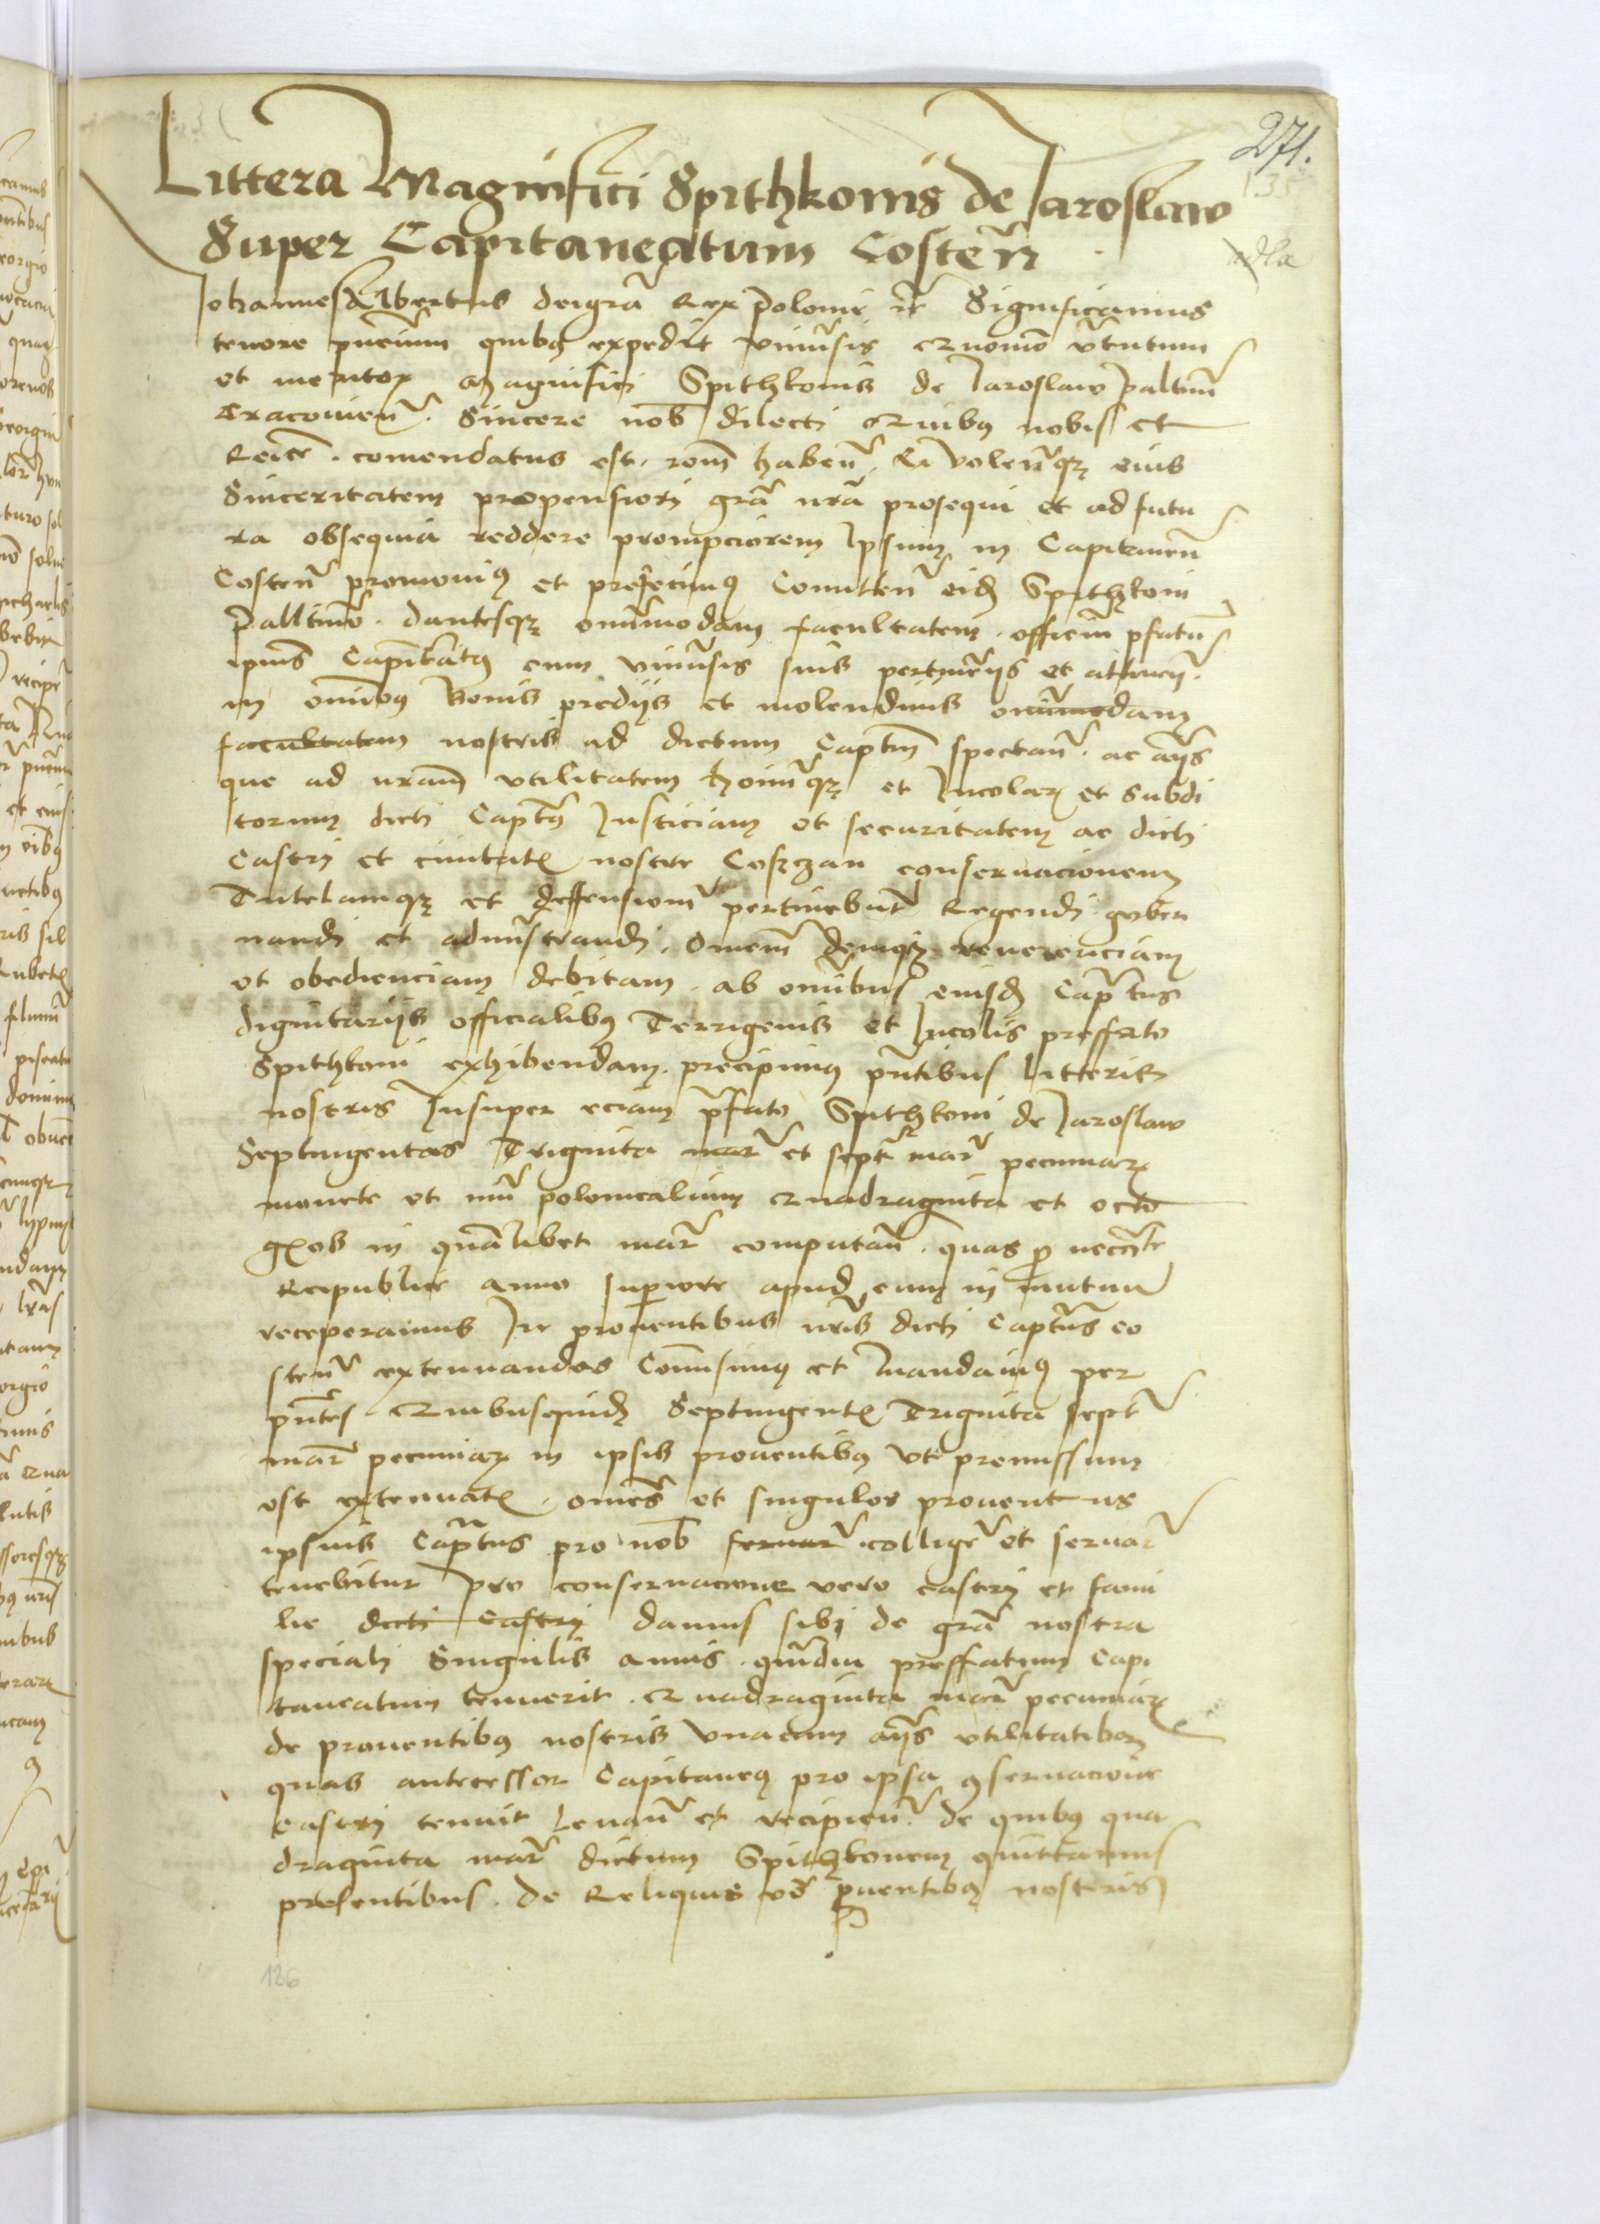 271.
Littera Magnifici Spithkonis de Jaroslaw
Super Capitaneatum Costeñ
Johannes Albertus dei grã Rex Polonie rc̃ Significamus
tenore pñcium quibꝫ expedit vniũsis Quomõ v̓tutum
et meritoꝝ Magnifici Spithkonis de Jaroslaw Paltini
Cracovieñ. Sincere nob̃ dilecti Quibꝫ nobis et
Reice. comendatus est. rom̃ habeñ. Et volenʼqꝫ eius
Sinceritatem propensiori grã nr̃a prosequi et ad futu
ra obsequia reddere prompciorem Ipsum in Capitaneũ
Costeñ promouimꝰ et prefecimꝰ Comitteñ eidꝫ Spithkoni
Palltino. dantesqꝫ omnimodam facultatem. officiũ pfatũ
ipius Capitaĩtꝰ cum vniũsis suis pertinẽcijs et attinẽcij.
in omnibꝫ bonis predijs et molendinis omnimodam
facultatem nostris ad dictum Captm̃ spectañ. ac alijs
que ad nr̃am vtilitatem hoim̃qꝫ et Incolaꝝ et Subdi
torum dicti Captꝰ Iusticiam et securitatem ac dicti
Castri et ciuitatꝭ nostre Coszczan conseruacionem
Tutelamqꝫ et deffensionem̃ pertinebunt Regendi guber
nandi et adminstrandi. Omnem̃ deniqꝫ reuerenciam
et obedienciam debitam. ab omnibus eiusdꝫ Captꝰus
dignitarijs officialibꝫ Terrigenis et Incolis preffato
Spithkoni exhibendam. precipimꝰ pñtibus litteris
nostris Insuper eciam pr̃fato Spithkoni de Jaroslaw
Septingentas Triginta mar̃ et sept̃ mar̃ pecuniaꝝ
monete et nũi polonicalium Quadraginta et octo
gꝭos in qualibet mar̃ computañ. quas ꝓ necc̃itate
Reipublice anno superiore apud eum in mutuũ
receperamus In prouentibus nr̃is dicti Captꝰus co
steñ extenuandas Com̃isimꝰ et Mandamꝰ per
pñtes. Quibusquidꝫ Septingentꝭ Triginta sept̃
mar̃ pecuniaꝝ in ipsis prouentibꝫ vt premissum
est extenuatꝭ. omẽs et singulos prouentus
ipsius Captꝰus pro nob̃ seruar̃ colligẽ et seruar̃
tenebitur Pro conseruacione vero castri et fami
lie dicti Castri damus sibi de grã nostra
speciali Singulis annis. quãdiu preffatum Capi
taneatum tenuerit. Quadraginta mar̃ pecuniaꝝ
de prouentibꝫ nostris vnacum alijs vtilitatibꝫ
quas antecessor Capitaneꝰ pro ipsa ꝯseruacione
Castri tenuit Leuañ et recipieñ. de quibꝫ qua
draginta mar̃ dictum Spithkonem quittamus
presentibus. de Reliquis v̓o ꝓuentibꝫ nostris
126